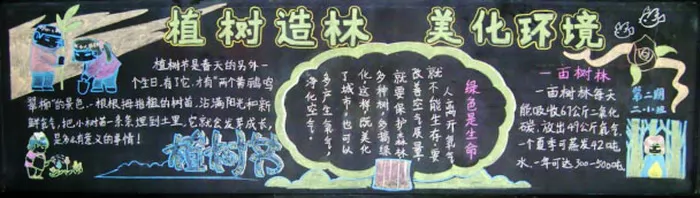 植树造林 美化环境
植树节是春天的另外一
个生日,有了它,才有"两个黄鹂鸣
翠柳"的景色,一根根拇指粗的树苗,沾满阳光和新
鲜空气,把小树苗一条条埋到土里,它就会发芽成长,
是多么有意义的事情!
植树节
绿色是生命
人离开氧气
就不能生存,要
改善空气质量
就要保护森林
多种树,多搞绿
化,这样既美化
了城市,也可以
多产生氧气,
净化空气。
一亩树林
一亩树林每天
能吸收67公斤二氧化
碳,放出49公斤氧气,
一个夏季可蒸发42吨
水,一年可达300-500吨。
第二期
二小班